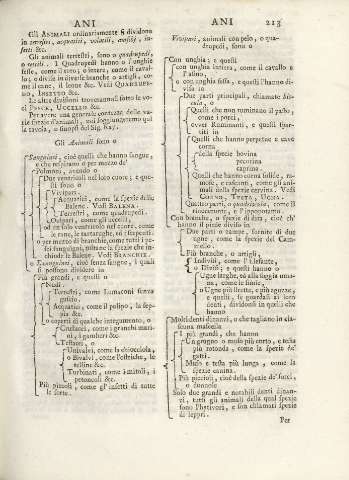 ANI
Gli ANIMALI ordinariamente si dividono
in terrestri, acquatici, volatili, anfibj, in-
setti &c.
Gli animali terrestri, sono o quadrupedi,
o rettili. I Quadrupedi hanno o l'unghie
fesse, come il
lo, o divise in diverse branche o artigli, co-
me il cane, il leone &c. Vedi QUADRUPE-
DO, INSETTO &c.
Le altre divisioni troveransi sotto le vo-
ci PESCE, UCCELLO &c.
Per avere una generale contezza delle va-
rie spezie d'animali, noi soggiungeremo qui
la tavola, o sinopsi del Sig. Ray.
Gli Animali sono o
Sanguini, cioè quelli che hanno sangue,
e che respirano o per mezzo de'
Polmoni, avendo o
Due ventricoli nel loro cuore; e que-
sti sono o
Vivipari.
Acquatici, come la spezie delle
Balene. Vedi BALENA.
Terrestri, come quadrupedi.
Ovipari, come gli uccelli,
od un solo ventricolo nel cuore, come
le rane, le tartarughe, ed i serpenti.
o per mezzo di branchie, come tutti i pe-
sci sanguigni, tutte le spezie
chiude le Balene. Vedi BRANCHIE.
o Esangui, cioè senza sangue, i quali
si possono dividere in
Più grandi, e quelli o
Nudi.
Terrestri, come Lumaconi senza
guscio.
Acquatici, come il polipo, la sep-
pia &c.
o coperti di qualche integumento, o
Crustacei, come i granchi mari-
ni, i gamberi &c.
Testacei, o
Univalvi, come la chiocciola,
o Bivalvi, come l'ostriche, le
telline &c.
Turbinati, come i
petoncoli &c.
Più piccoli, come gl'insetti di tutte
le sorte.
ANI 213
Vivipari, animali con pelo, o qua-
drupedi, sono o
Con unghie; e questi
con unghia intera, come il cavallo e
l'asino,
o con unghia fessa, e questi l'hanno di-
visa in
Due parti principali, chiamate
o
Quelli che non ruminano il pasto,
come i porci,
ovver Ruminanti, e questi spar-
titi in
Quelli che hanno perpetue e cave
corna
della spezie bovina
pecorina
caprina.
Quelli che hanno corna solide, ra-
mose, e cascanti, come gli ani-
mali della spezie cervina. Vedi
CORNO, TESTA, UGNA.
Quattro parti, o come il
rinocerante, e l'ippopotamo.
Con branche, o spezie di dita, cioè ch'
hanno il piede diviso in
Due parti o zampe, fornite di due
ugne, come la spezie del Cam-
mello.
Più branche, o artigli,
Indivisi, come l'Elefante,
o Divisi; e questi hanno o
Ugne larghe, ed alla foggia uma-
na, come le simie,
o Ugne più strette, e più aguzze,
e quelli, se guardasi ai loro
denti, dividonsi in quelli che
hanno
Molti denti dinanzi, o che tagliano in cia-
scuna mascella
I più grandi, che hanno
Un grugno o muso più corto, e testa
più rotonda, come la spezie de'
gatti.
Muso e testa più lunga, come la
spezie canina.
Più piccioli, cioè della spezie de'
o donnole
Solo due grandi e notabili denti dinan-
zi, tutti gli animali della qual spezie
sono Phytivori, e son chiamati spezie
di leppri.
Per